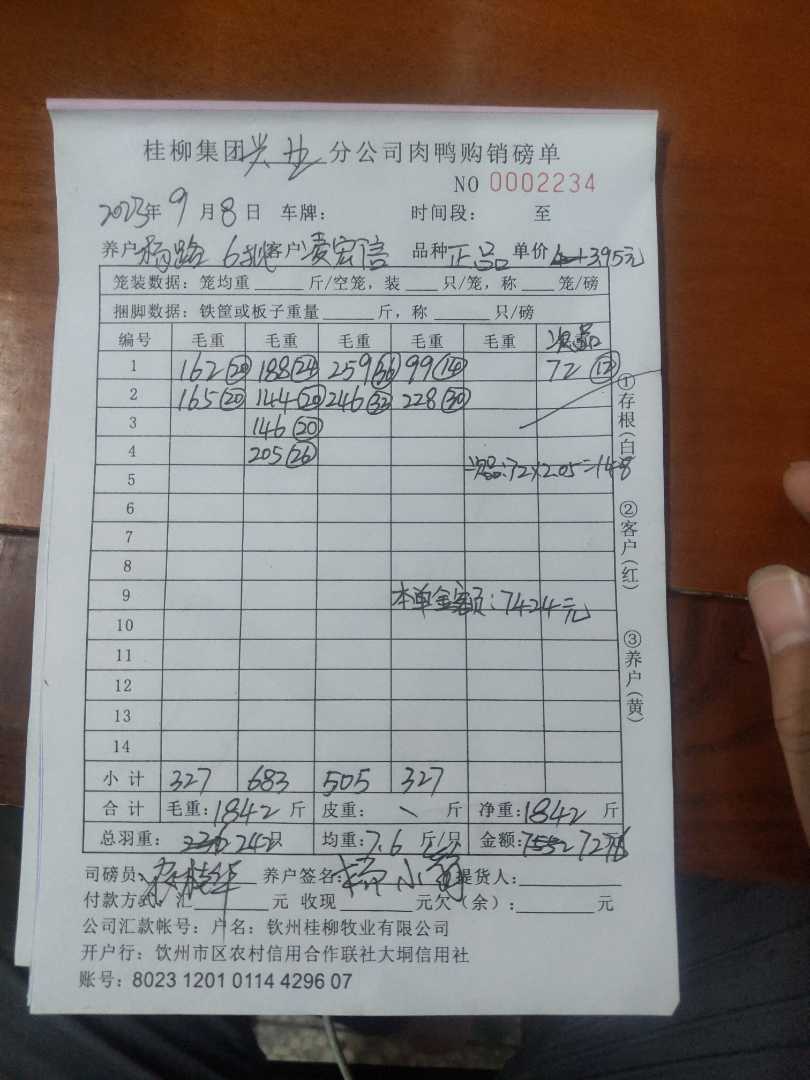 桂柳集团兴业分公司肉鸭购销磅单
NO 0002234
2023年9月8日 车牌： 时间段： 至
养户杨路 6批客户凌宏信 品种正品单价3.95元
笼装数据：笼均重______斤/空笼，装____只/笼，称____笼/磅
捆脚数据：铁筐或板子重量______斤，称______只/磅
编号 毛重 毛重 毛重 毛重 毛重 次品
1 162(20) 188(24) 259(36) 99(14) 72(12)
2 165(20) 144(20) 246(32) 228(30)
3 146(20)
4 205(26) 次品:72×2.05=148
5
6
7
8
9 本单金额:7424元
10
11
12
13
14
小计 327 683 505 327
合计 毛重:1842斤 皮重： 斤 净重:1842斤
总羽重：242只 均重:7.6斤/只 金额:7276
司磅员: 养户签名: 提货人:
付款方式：汇______元 收现______元欠（余）：______元
公司汇款帐号：户名：钦州桂柳牧业有限公司
开户行：饮州市区农村信用合作联社大垌信用社
账号：8023 1201 0114 4296 07
①存根(白)
②客户(红)
③养户(黄)